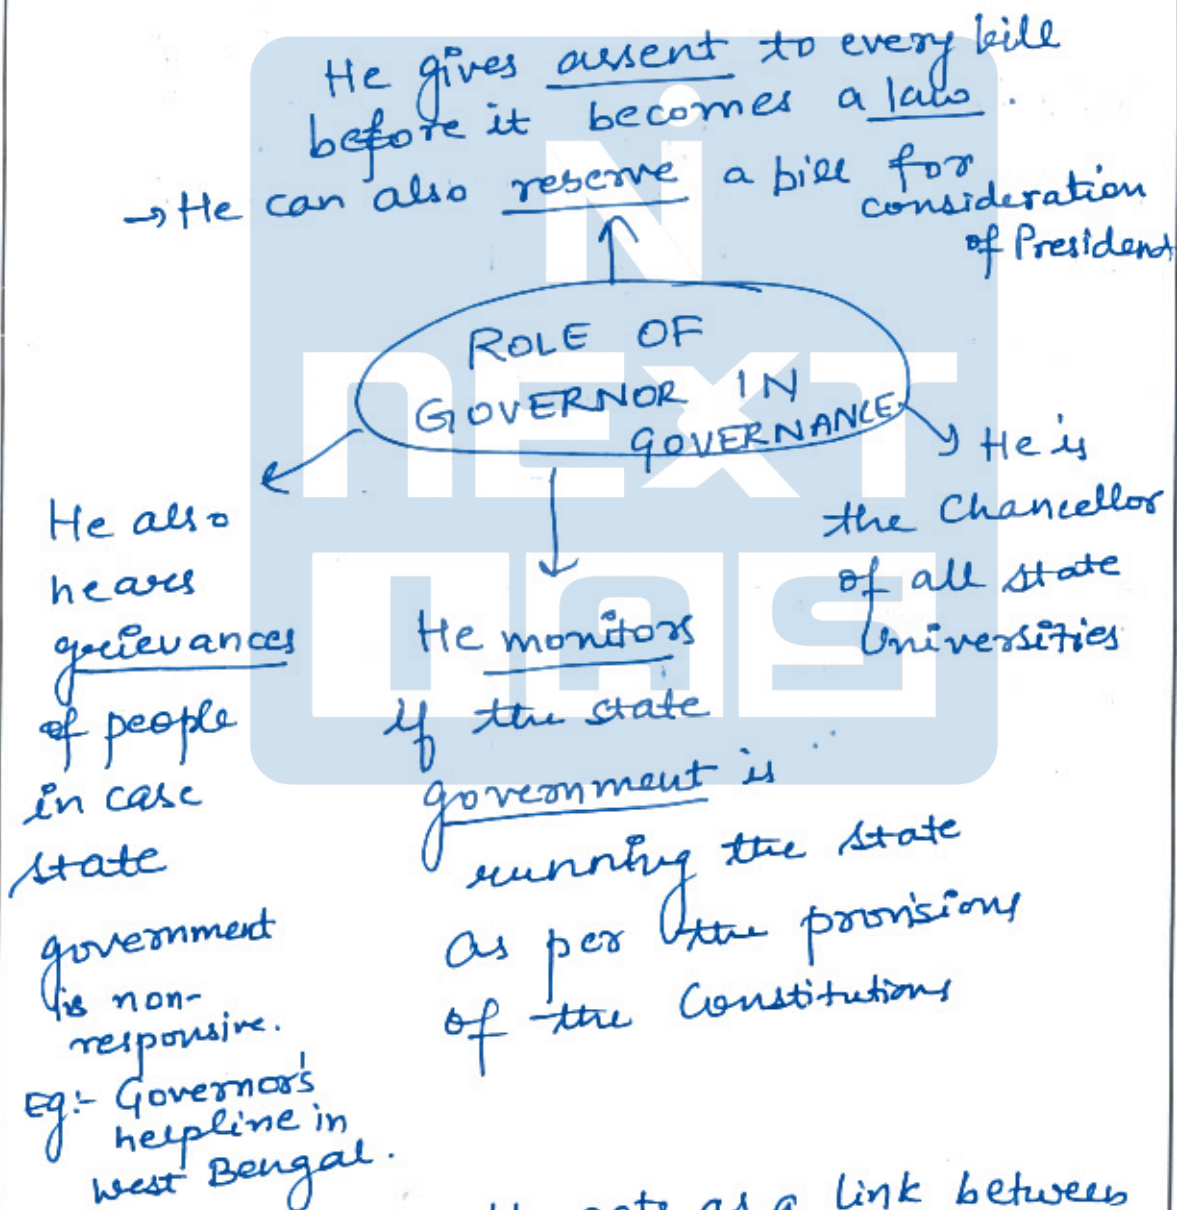 He gives assent to every bill
before it becomes a law.
→ He can also reserve a bill for
consideration
of President
ROLE OF
GOVERNOR IN
GOVERNANCE
He also
hears
grievances
of people
in case
state
government
is non-
responsive.
Eg:- Governor's
helpline in
West Bengal.
He monitors
if the state
government is
running the state
as per the provisions
of the Constitutions
He is
the Chancellor
of all state
Universities
as a link between
N
NEXT
IAS